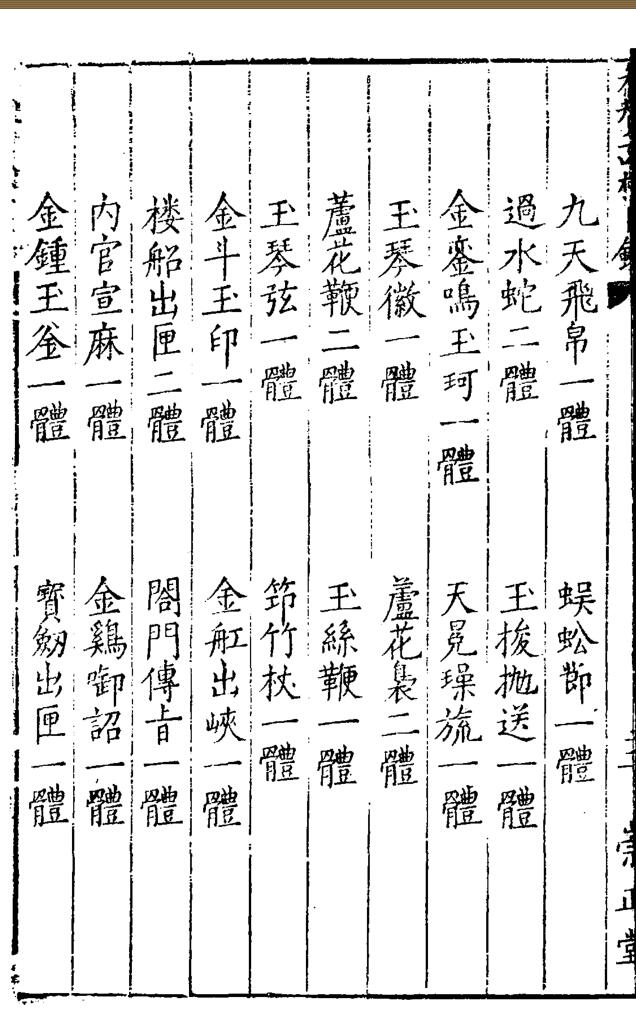 九天飛帛一體　蜈蚣節一體
過水蛇二體　玉梭抛送一體
金鑾鳴玉珂一體　天冕璪旒一體
玉琴徽一體　蘆花裊二體
蘆花鞭二體　玉絲鞭一體
玉琴弦一體　筇竹杖一體
金斗玉印一體　金舡出峽一體
楼船出匣二體　閤門傳旨一體
内官宣麻一體　金鷄啣詔一體
金鍾玉釜一體　寳劔出匣一體
崇正堂